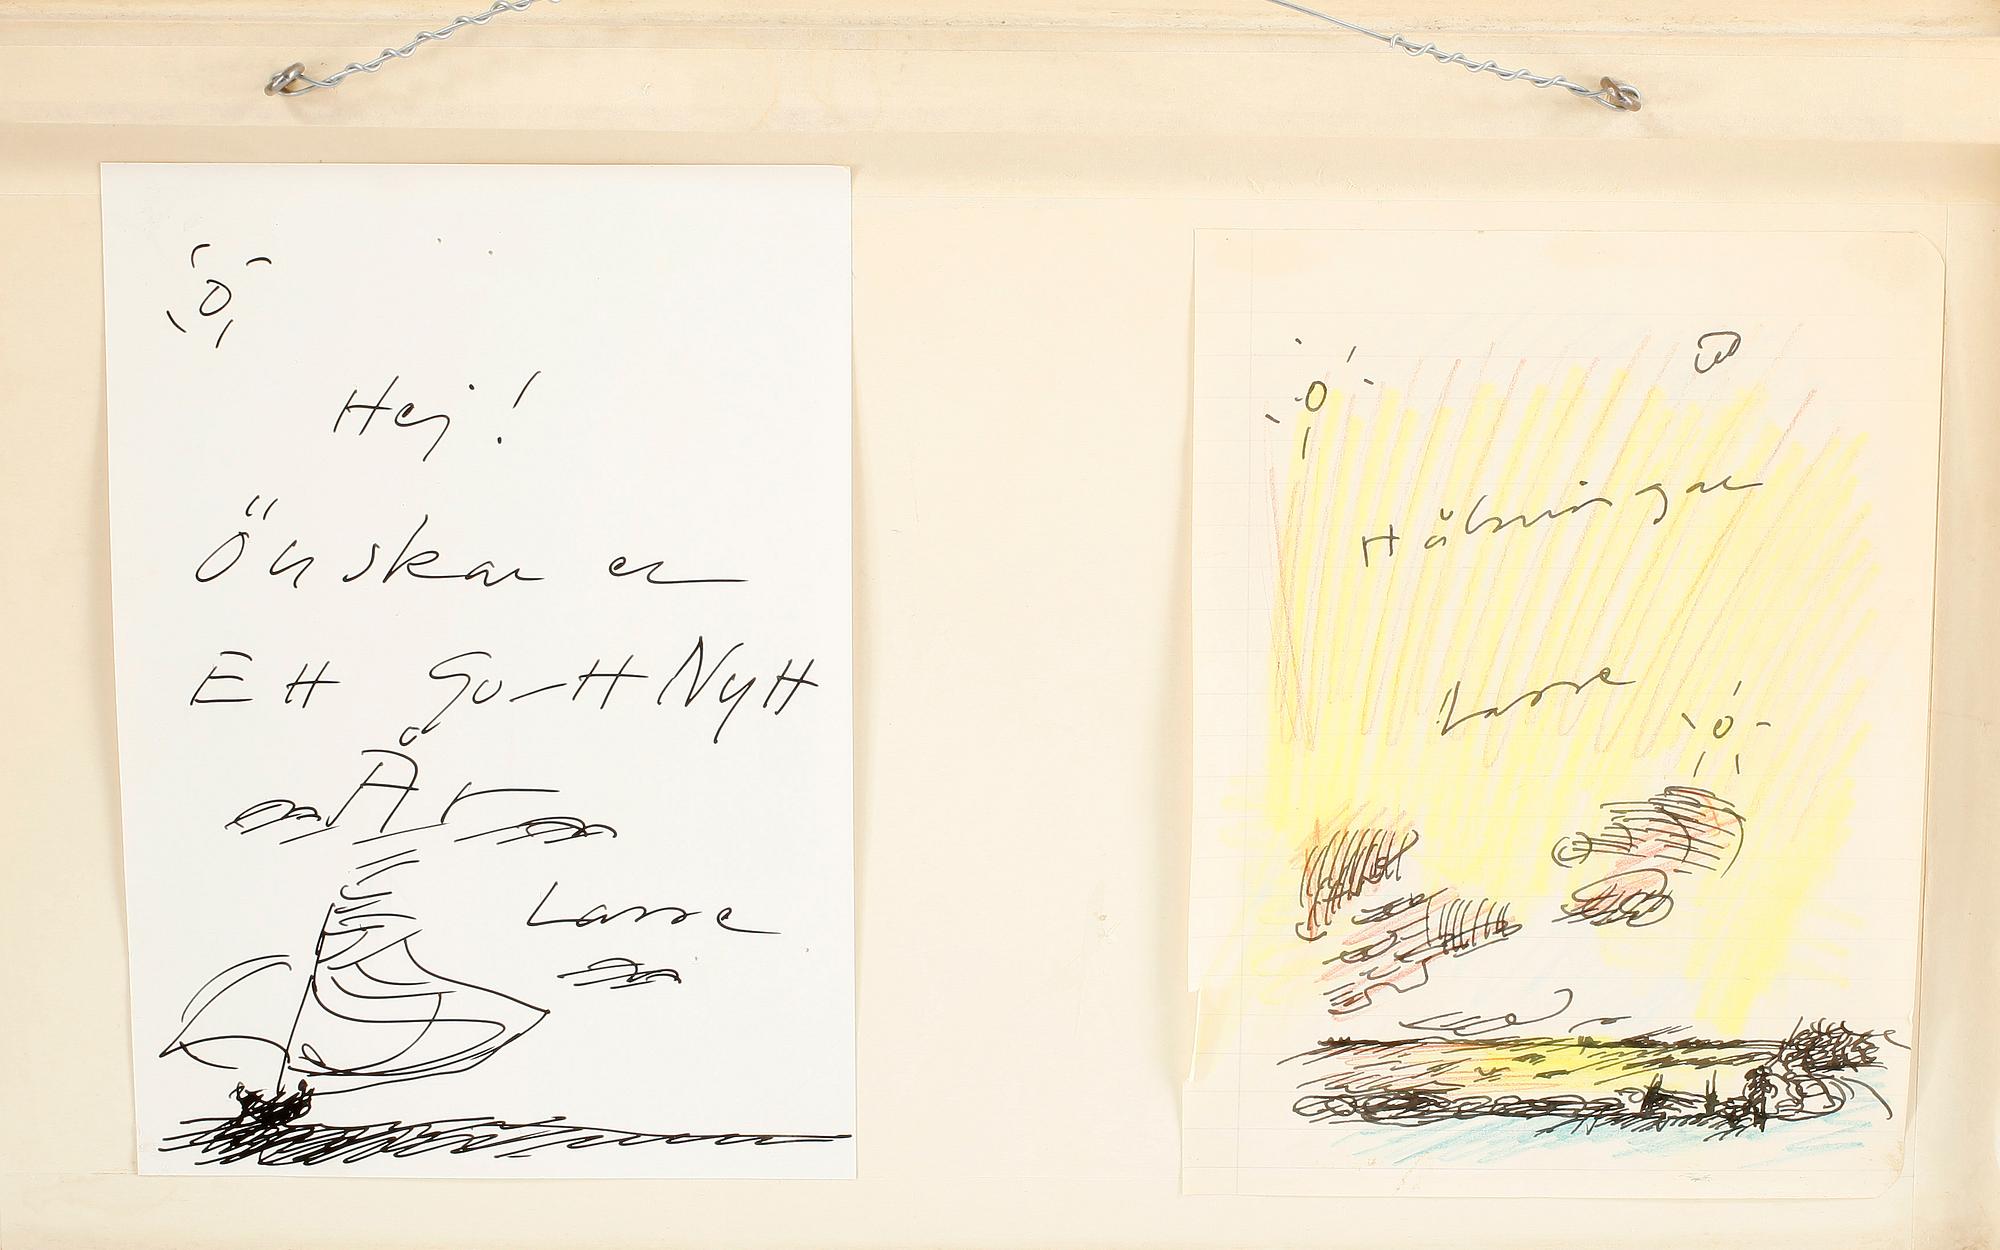 Hej!
Önskar er
Ett Gott Nytt
År
Lasse
Hälsningar
Lasse